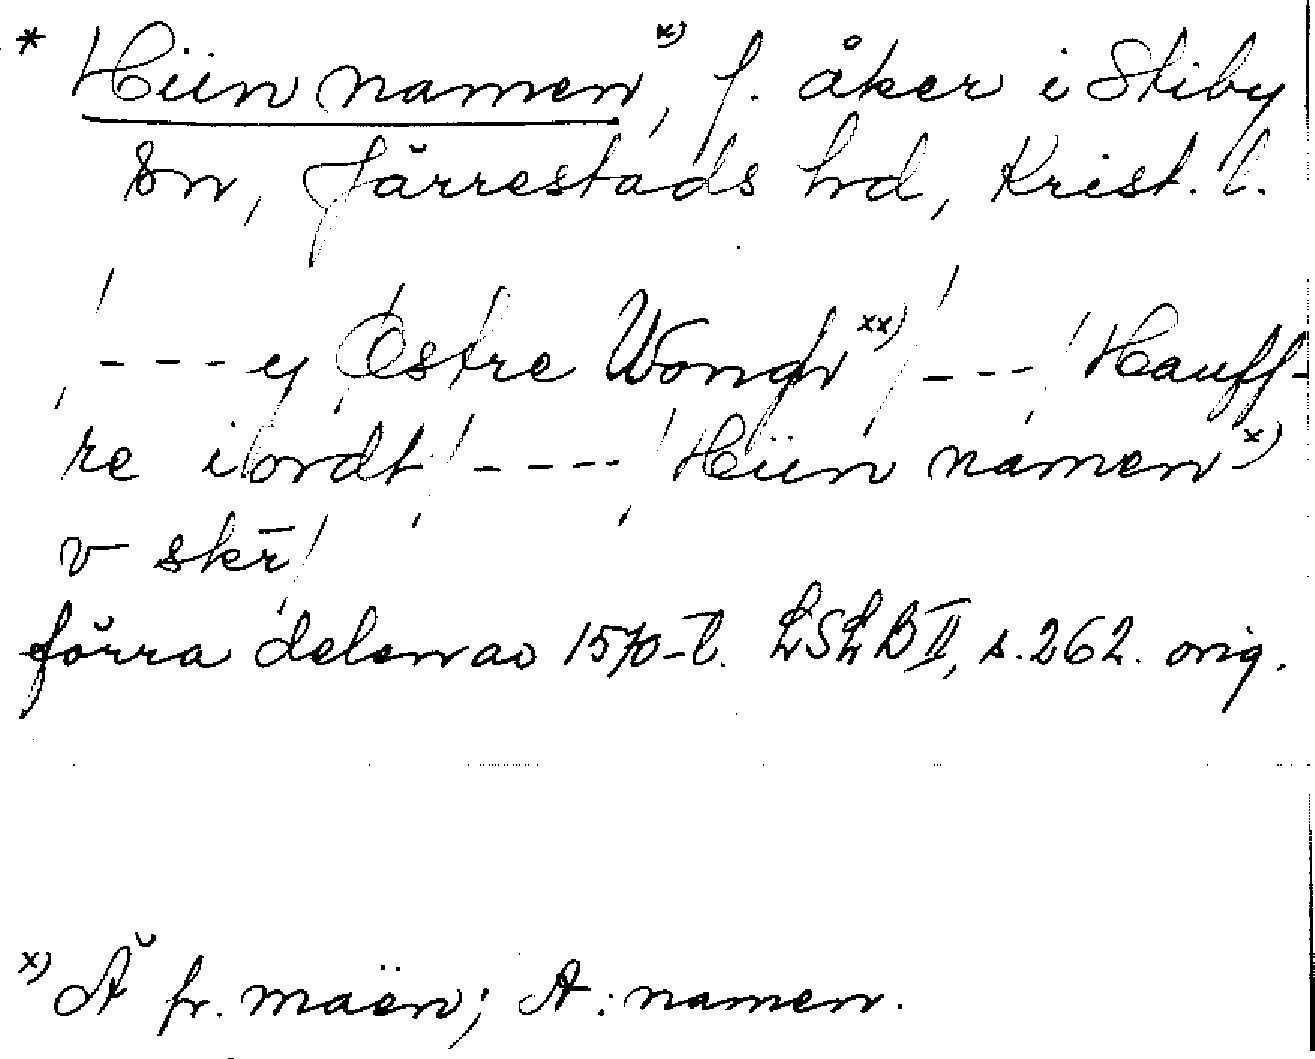 * Hiin namen x), f. åker i Stiby
sn, Järrestads hd, Krist. l.
/---y Østre Wongh xx)/---/ Hauff-
re iordt/----/Hiin namen x)
v skr̄/
förra delen av 1570-t. LSLB II, s. 262. orig.
x) Ä fr. maën; A: namen.